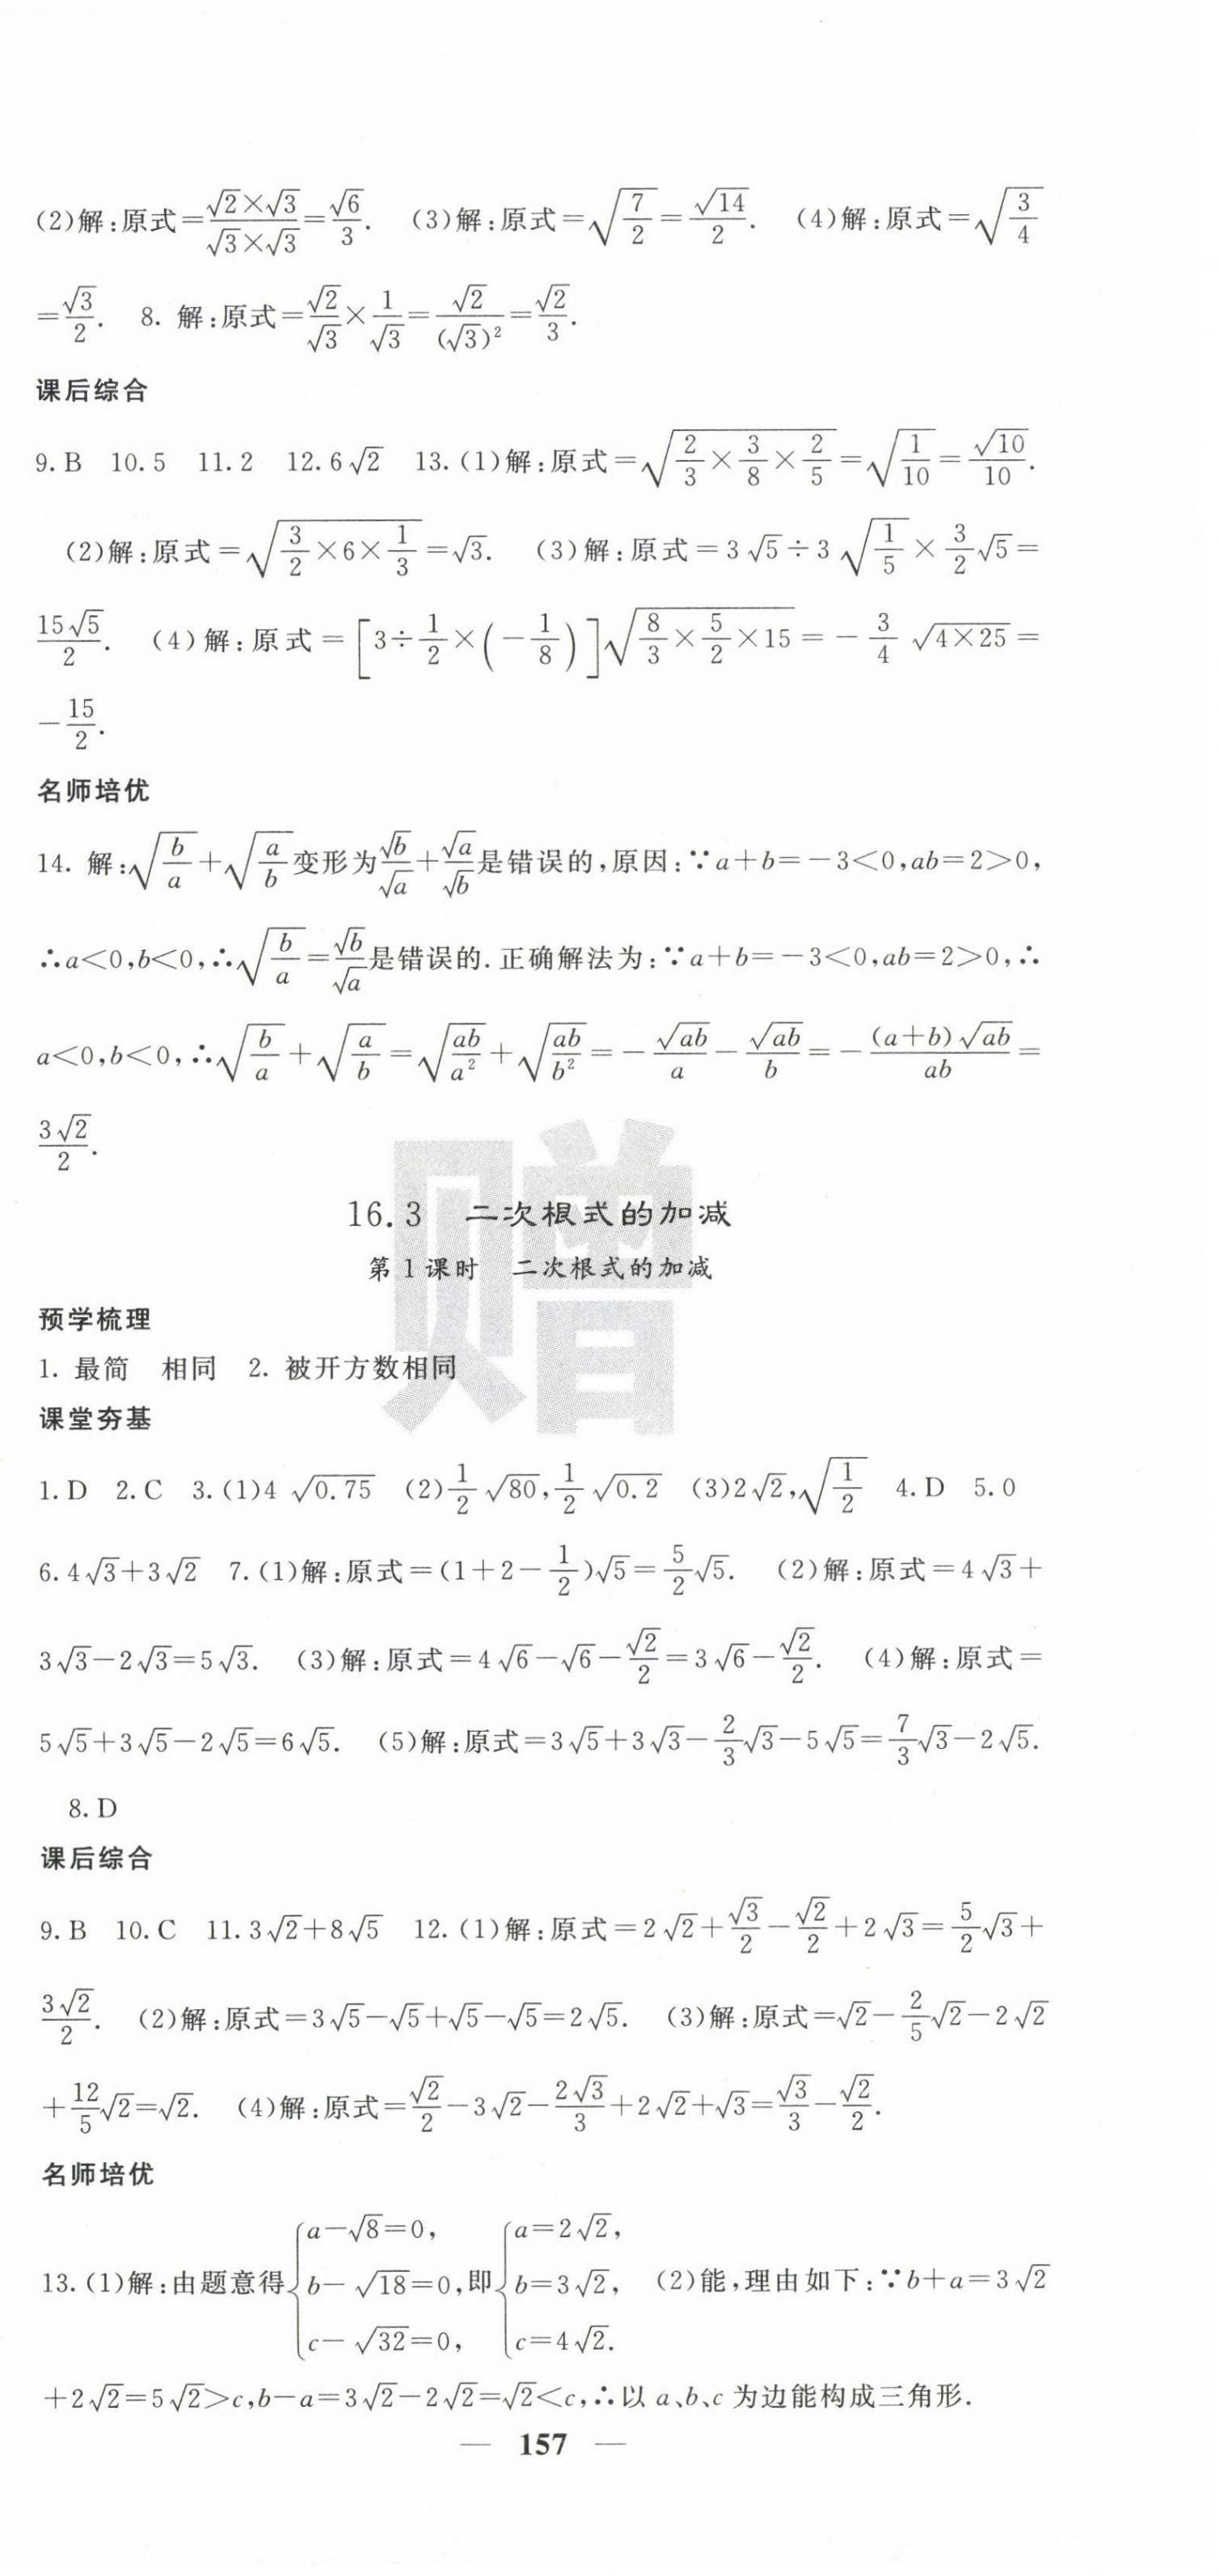 (2)解:原式=\frac{√2×√3}{√3×√3}=\frac{√6}{3}. (3)解:原式=√{\frac{7}{2}}=\frac{√14}{2}. (4)解:原式=√{\frac{3}{4}}
=\frac{√3}{2}. 8. 解:原式=\frac{√2}{√3}×\frac{1}{√3}=\frac{√2}{(√3)²}=\frac{√2}{3}.
课后综合
9.B 10.5 11.2 12.6√2 13.(1)解:原式=√{\frac{2}{3}×\frac{3}{8}×\frac{2}{5}}=√{\frac{1}{10}}=\frac{√10}{10}.
(2)解:原式=√{\frac{3}{2}×6×\frac{1}{3}}=√3. (3)解:原式=3√5÷3√{\frac{1}{5}}×\frac{3}{2}√5=
\frac{15√5}{2}. (4)解:原式=[3÷\frac{1}{2}×(-\frac{1}{8})]√{\frac{8}{3}×\frac{5}{2}×15}=-\frac{3}{4}√{4×25}=
-\frac{15}{2}.
名师培优
14. 解:√{\frac{b}{a}}+√{\frac{a}{b}}变形为\frac{√b}{√a}+\frac{√a}{√b}是错误的,原因:∵a+b=-3<0,ab=2>0,
∴a<0,b<0,∴√{\frac{b}{a}}=\frac{√b}{√a}是错误的.正确解法为:∵a+b=-3<0,ab=2>0,∴
a<0,b<0,∴√{\frac{b}{a}}+√{\frac{a}{b}}=√{\frac{ab}{a²}}+√{\frac{ab}{b²}}=-\frac{√{ab}}{a}-\frac{√{ab}}{b}=-\frac{(a+b)√{ab}}{ab}=
\frac{3√2}{2}.
赠
16.3 二次根式的加减
第1课时 二次根式的加减
预学梳理
1. 最简 相同 2. 被开方数相同
课堂夯基
1.D 2.C 3.(1)4√{0.75} (2)\frac{1}{2}√{80},\frac{1}{2}√{0.2} (3)2√2,√{\frac{1}{2}} 4.D 5.0
6.4√3+3√2 7.(1)解:原式=(1+2-\frac{1}{2})√5=\frac{5}{2}√5. (2)解:原式=4√3+
3√3-2√3=5√3. (3)解:原式=4√6-√6-\frac{√2}{2}=3√6-\frac{√2}{2}. (4)解:原式=
5√5+3√5-2√5=6√5. (5)解:原式=3√5+3√3-\frac{2}{3}√3-5√5=\frac{7}{3}√3-2√5.
8.D
课后综合
9.B 10.C 11.3√2+8√5 12.(1)解:原式=2√2+\frac{√3}{2}-\frac{√2}{2}+2√3=\frac{5}{2}√3+
\frac{3√2}{2}. (2)解:原式=3√5-√5+√5-√5=2√5. (3)解:原式=√2-\frac{2}{5}√2-2√2
+\frac{12}{5}√2=√2. (4)解:原式=\frac{√2}{2}-3√2-\frac{2√3}{3}+2√2+√3=\frac{√3}{3}-\frac{√2}{2}.
名师培优
13.(1)解:由题意得{a-√8=0, b-√18=0, c-√32=0,即{a=2√2, b=3√2, c=4√2. (2)能,理由如下:∵b+a=3√2
+2√2=5√2>c,b-a=3√2-2√2=√2<c,∴以 a、b、c 为边能构成三角形.
— 157 —